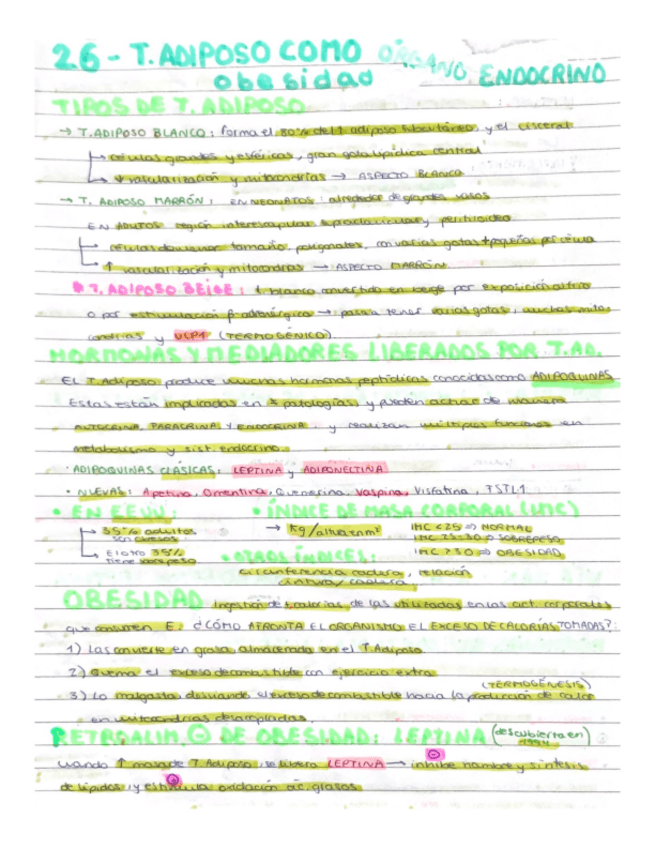 2.6 - T. ADIPOSO COMO ÓRGANO ENDOCRINO
obesidad
TIPOS DE T. ADIPOSO
→ T. ADIPOSO BLANCO: forma el 80% del T. adiposo subcutáneo y el visceral
células grandes y esféricas, gran gota lipídica central
↓ vascularización y mitocondrias → ASPECTO BLANCO
→ T. ADIPOSO MARRÓN: EN NEONATOS: alrededor de grandes vasos
EN ADULTOS región interescapular supraclavicular y peritiroidea
células de menor tamaño, poligonales, con varias gotas + pequeñas por célula
↑ vascularización y mitocondrias → ASPECTO MARRÓN
T. ADIPOSO BEIGE: t. blanco convertido en beige por exposición al frío
o por estimulación β adrenérgica → pasa a tener varias gotas, muchas mito
condrias y UCP1 (TERMOGÉNICO)
HORMONAS Y MEDIADORES LIBERADOS POR T. AD.
EL T. Adiposo produce muchas hormonas peptídicas conocidas como ADIPOQUINAS
Estas están implicadas en ≠ patologías y pueden actuar de manera
AUTOCRINA, PARACRINA Y ENDOCRINA, y realizan múltiples funciones en
metabolismo y sist. endocrino.
· ADIPOQUINAS CLÁSICAS: LEPTINA y ADIPONECTINA
· NUEVAS: Apelina, Omentina, Quemerina, Vaspina, Visfatina, FSTL1
• EN EEUU: • ÍNDICE DE MASA CORPORAL (IMC)
35% adultos son obesos → Kg/altura en m² IMC < 25 ⇒ NORMAL
IMC 25-30 ⇒ SOBREPESO
El otro 35% tiene sobrepeso • OTROS ÍNDICES: IMC > 30 ⇒ OBESIDAD
circunferencia cadera, relación
cintura/cadera
OBESIDAD Ingestión de + calorías de las utilizadas en las act. corporales
que consumen E. ¿CÓMO AFRONTA EL ORGANISMO EL EXCESO DE CALORÍAS TOMADAS?:
1) Las convierte en grasa, almacenada en el T. Adiposo
2) Quema el exceso de combustible con ejercicio extra
(TERMOGÉNESIS)
3) Lo malgasta, desviando el exceso de combustible hacia la producción de calor
en mitocondrias desacopladas.
RETROALIM. ⊖ DE OBESIDAD: LEPTINA (descubierta en 1994)
cuando ↑ masa de T. Adiposo, se libera LEPTINA → inhibe hambre y síntesis
de lípidos, y estimula oxidación ác. grasos.